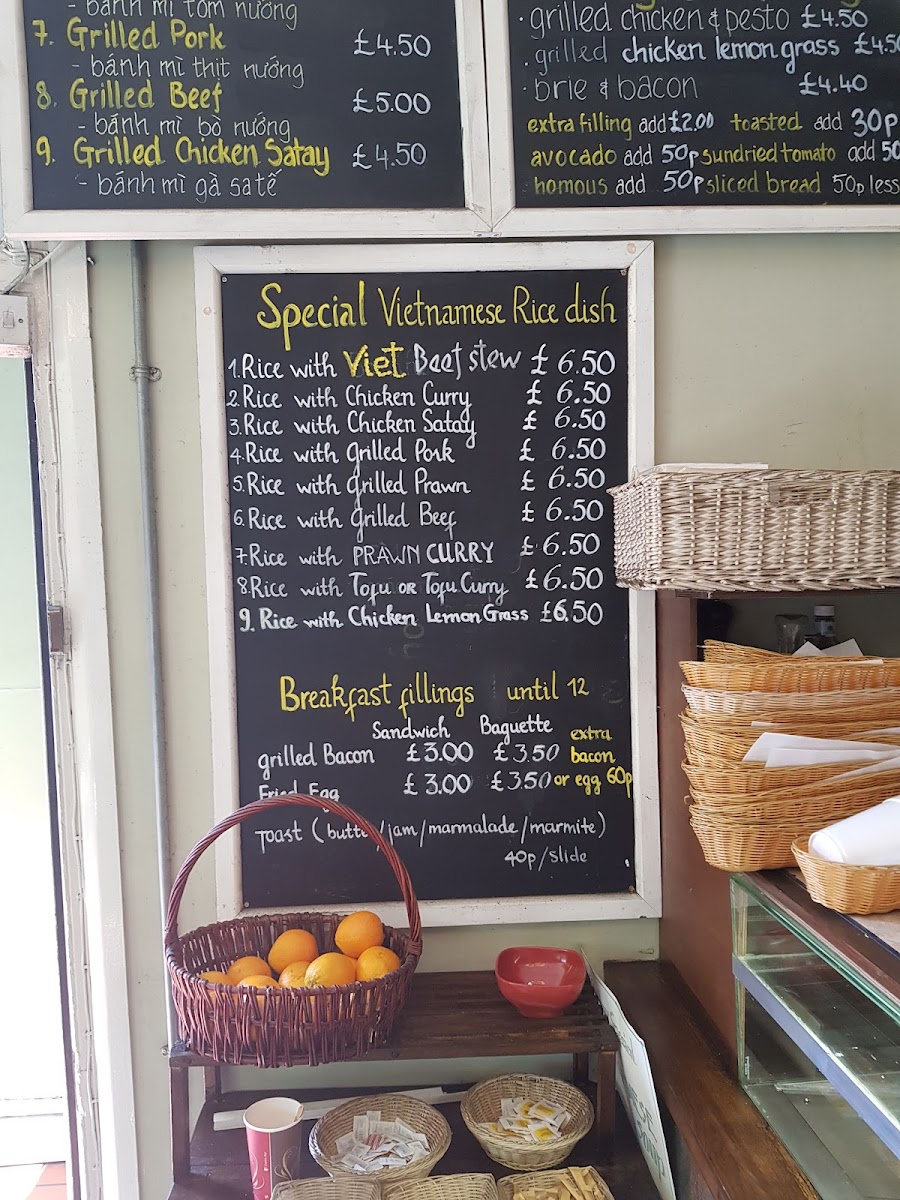 - bánh mì tôm nướng
7. Grilled Pork £4.50
- bánh mì thịt nướng
8. Grilled Beef £5.00
- bánh mì bò nướng
9. Grilled Chicken Satay £4.50
- bánh mì gà sa tế
· grilled chicken & pesto £4.50
· grilled chicken lemon grass £4.50
· brie & bacon £4.40
extra filling add £2.00 toasted add 30p
avocado add 50p sundried tomato add 50
homous add 50p sliced bread 50p less
Special Vietnamese Rice dish
1. Rice with Viet Beef stew £ 6.50
2. Rice with Chicken Curry £ 6.50
3. Rice with Chicken Satay £ 6.50
4. Rice with Grilled Pork £ 6.50
5. Rice with Grilled Prawn £ 6.50
6. Rice with Grilled Beef £ 6.50
7. Rice with PRAWN CURRY £ 6.50
8. Rice with Tofu OR Tofu Curry £ 6.50
9. Rice with Chicken Lemon Grass £6.50
Breakfast fillings until 12
Sandwich Baguette extra
grilled Bacon £3.00 £3.50 bacon
Fried Egg £3.00 £3.50 or egg 60p
Toast (butter/jam/marmalade/marmite)
40p/slide